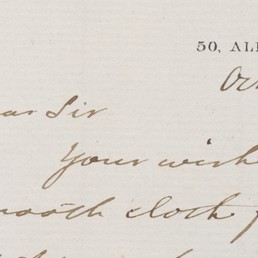 50, AL
Oc
ar Sir
Your wish
mooth cloth f